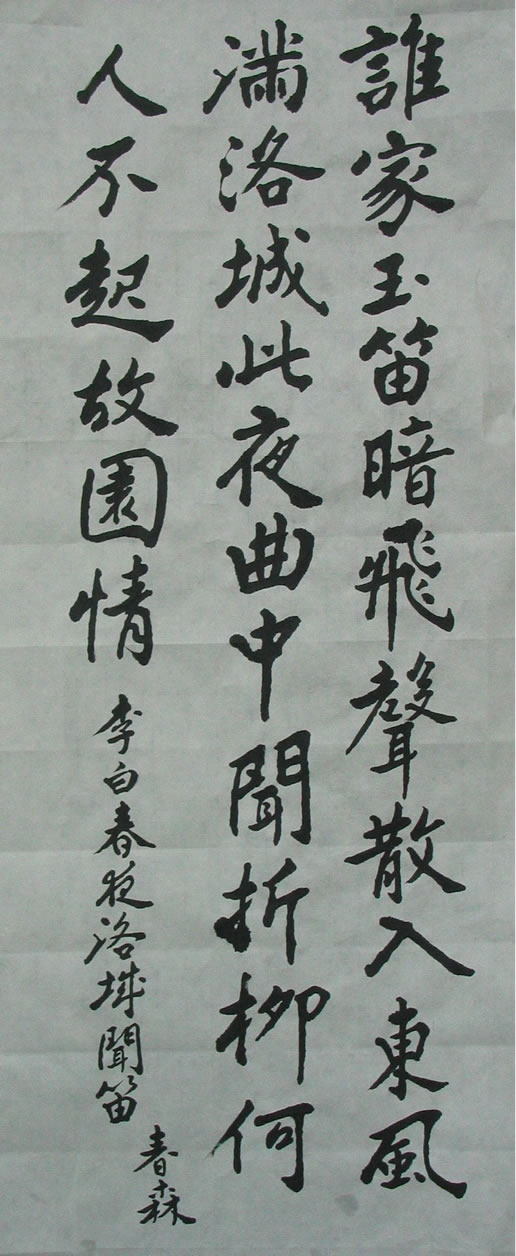 誰家玉笛暗飛聲散入東風
滿洛城此夜曲中聞折柳何
人不起故園情
李白春夜洛城聞笛
春森